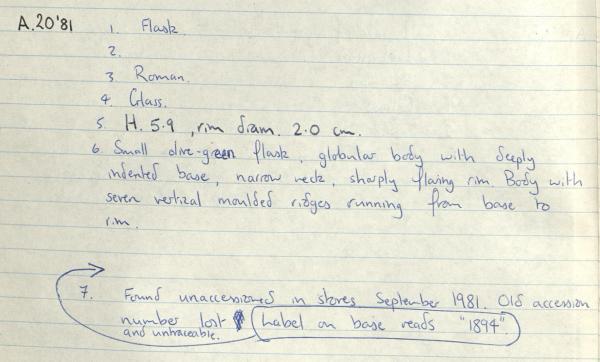 A.20'81 1. Flask.
2.
3. Roman.
4. Glass.
5. H. 5.9, rim diam. 2.0 cm.
6. Small olive-green flask, globular body with deeply
indented base, narrow neck, sharply flaring rim. Body with
seven vertical moulded ridges running from base to
rim.
7. Found unaccessioned in stores September 1981. Old accession
number lost Label on base reads "1894".
and untraceable.